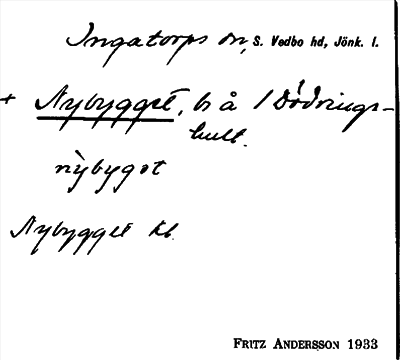 Ingatorps sn, S. Vedbo hd, Jönk. l.
+ Nybygget, br å 1 Dödrings-
hult.
nỳbygət
Nybygget kb.
FRITZ ANDERSSON 1933